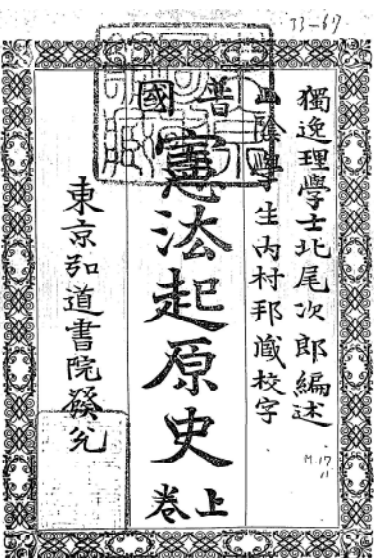 33-67
獨逸理學士北尾次郎編述
山陰學生内村邦藏校字
普國
憲法起原史
上卷
東京弘道書院發兌
M.17
11